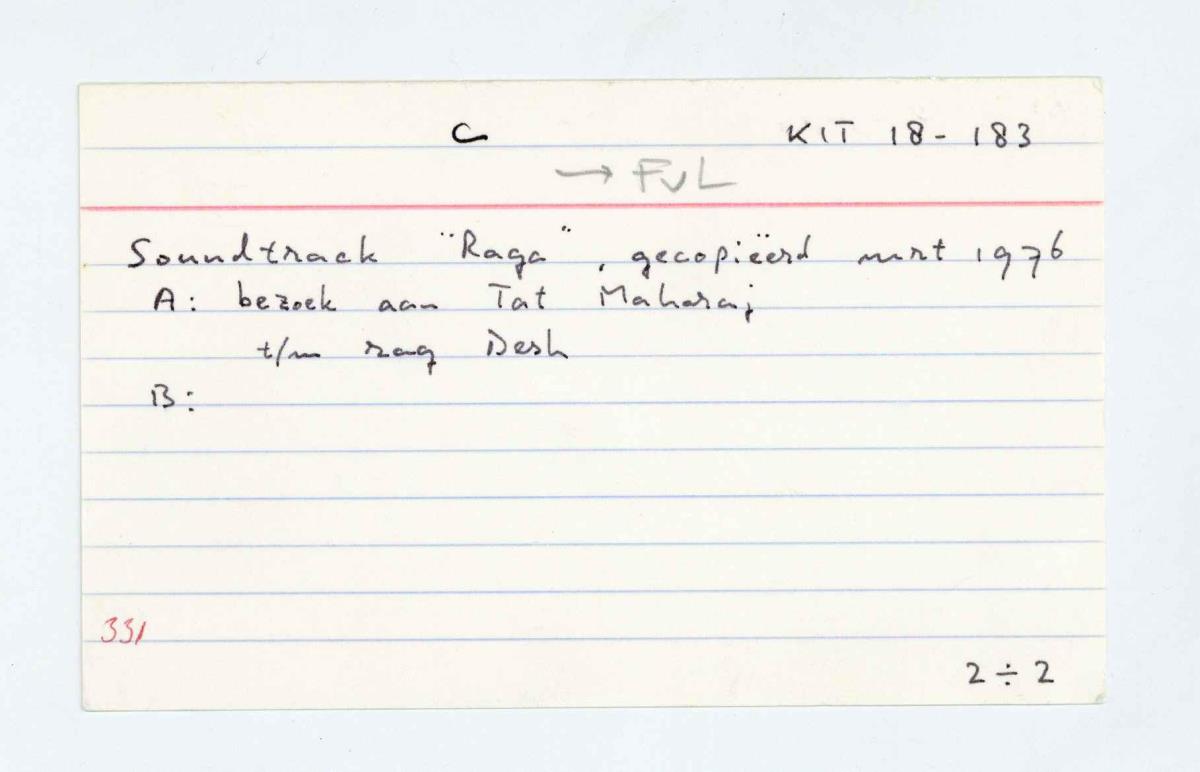 C KIT 18-183
→ FvL
Soundtrack "Raga", gecopiëerd mrt 1976
A: bezoek aan Tat Maharaj
t/m rag Desh
B:
331
2 ÷ 2